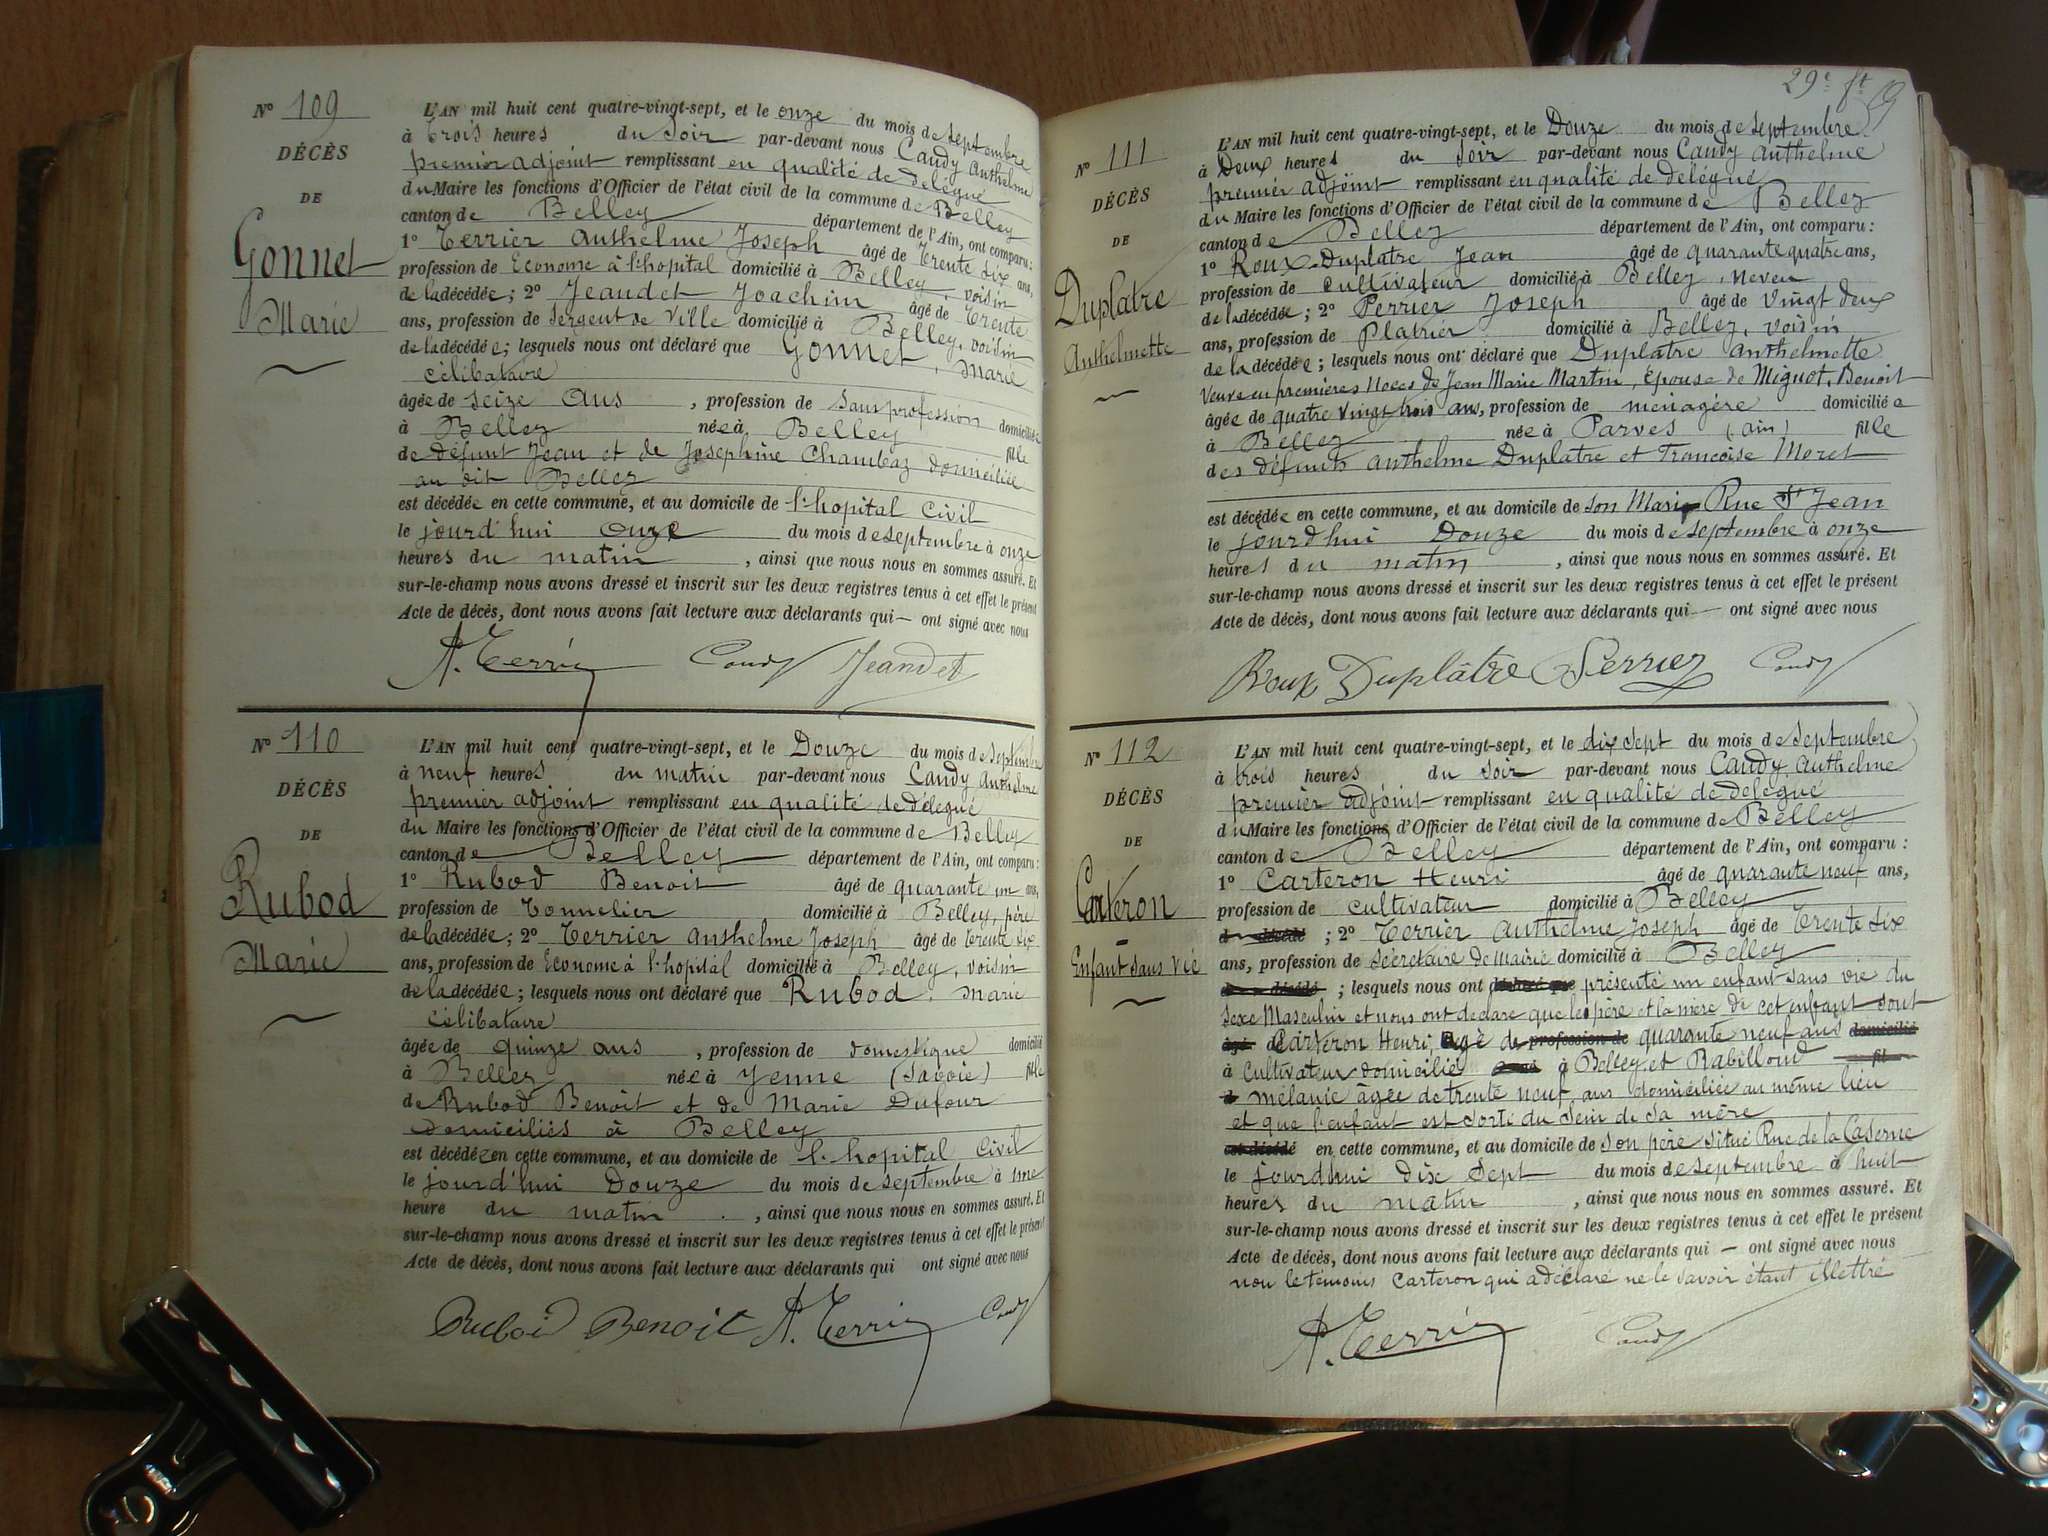 Nº 109
DÉCÈS
DE
Gonnet
Marie
L'AN mil huit cent quatre-vingt-sept, et le onze du mois de septembre
à trois heures du soir par-devant nous Candy Anthelme
premier adjoint remplissant en qualité de délégué
du Maire les fonctions d'Officier de l'état civil de la commune de Belley
canton de Belley département de l'Ain, ont comparu :
1º Terrier Anthelme Joseph âgé de trente six ans,
profession de Econome à l'hopital domicilié à Belley, voisin
de la décédée ; 2º Jeandet Joachim âgé de trente
ans, profession de Sergent de Ville domicilié à Belley, voisin
de la décédée ; lesquels nous ont déclaré que Gonnet, Marie
célibataire
âgée de seize ans, profession de sans profession domiciliée
à Belley née à Belley fille
de défunt Jean et de Josephine Chambaz domiciliée
au dit Belley
est décédée en cette commune, et au domicile de l'hopital Civil
le jourd'hui onze du mois de septembre à onze
heures du matin, ainsi que nous nous en sommes assuré. Et
sur-le-champ nous avons dressé et inscrit sur les deux registres tenus à cet effet le présent
Acte de décès, dont nous avons fait lecture aux déclarants qui — ont signé avec nous
A. Terrier Candy Jeandet
Nº 110
DÉCÈS
DE
Rubod
Marie
L'AN mil huit cent quatre-vingt-sept, et le Douze du mois de septembre
à neuf heures du matin par-devant nous Candy Anthelme
premier adjoint remplissant en qualité de délégué
du Maire les fonctions d'Officier de l'état civil de la commune de Belley
canton de Belley département de l'Ain, ont comparu :
1º Rubod Benoit âgé de quarante un ans,
profession de Tonnelier domicilié à Belley, père
de la décédée ; 2º Terrier Anthelme Joseph âgé de trente six
ans, profession de Econome à l'hopital domicilié à Belley, voisin
de la décédée ; lesquels nous ont déclaré que Rubod, Marie
célibataire
âgée de quinze ans, profession de domestique domiciliée
à Belley née à Yenne (Savoie) fille
de Rubod Benoit et de Marie Dufour
domiciliés à Belley
est décédée en cette commune, et au domicile de l'hopital Civil
le jourd'hui Douze du mois de septembre à une
heure du matin, ainsi que nous nous en sommes assuré. Et
sur-le-champ nous avons dressé et inscrit sur les deux registres tenus à cet effet le présent
Acte de décès, dont nous avons fait lecture aux déclarants qui ont signé avec nous
Rubod Benoit A. Terrier Candy
29e ft
Nº 111
DÉCÈS
DE
Duplatre
Anthelmette
L'AN mil huit cent quatre-vingt-sept, et le Douze du mois de septembre
à Deux heures du soir par-devant nous Candy Anthelme
premier adjoint remplissant en qualité de délégué
du Maire les fonctions d'Officier de l'état civil de la commune de Belley
canton de Belley département de l'Ain, ont comparu :
1º Roux-Duplatre Jean âgé de quarante quatre ans,
profession de cultivateur domicilié à Belley, neveu
de la décédée ; 2º Perrier Joseph âgé de vingt deux
ans, profession de Platrier domicilié à Belley, voisin
de la décédée ; lesquels nous ont déclaré que Duplatre Anthelmette
Veuve en premières noces de Jean Marie Martin, épouse de Mignot, Benoit
âgée de quatre vingt trois ans, profession de ménagère domiciliée
à Belley née à Parves (Ain) fille
des défunts Anthelme Duplatre et Francoise Moret
est décédée en cette commune, et au domicile de son Mari Rue St Jean
le jourd'hui Douze du mois de septembre à onze
heures du matin, ainsi que nous nous en sommes assuré. Et
sur-le-champ nous avons dressé et inscrit sur les deux registres tenus à cet effet le présent
Acte de décès, dont nous avons fait lecture aux déclarants qui — ont signé avec nous
Roux Duplâtre Perrier Candy
Nº 112
DÉCÈS
DE
Carteron
Enfant sans vie
L'AN mil huit cent quatre-vingt-sept, et le dix sept du mois de septembre
à trois heures du soir par-devant nous Candy, Anthelme
premier adjoint remplissant en qualité de délégué
du Maire les fonctions d'Officier de l'état civil de la commune de Belley
canton de Belley département de l'Ain, ont comparu :
1º Carteron Henri âgé de quarante neuf ans,
profession de cultivateur domicilié à Belley
décédé ; 2º Terrier Anthelme Joseph âgé de trente six
ans, profession de secrétaire de Mairie domicilié à Belley
décédé ; lesquels nous ont déclaré que présenté un enfant sans vie du
sexe Masculin et nous ont declaré que les père et la mère de cet enfant sont
âgé de Carteron Henri, âgé de profession de quarante neuf ans domicilié
à Cultivateur domicilié à Belley et Rabilloud fil
de mélanie âgée de trente neuf ans domiciliée au même lieu
et que l'enfant est sorti du sein de sa mère
est décédé en cette commune, et au domicile de son père situé Rue de la Caserne
le jourd'hui dix sept du mois de septembre à huit
heures du matin, ainsi que nous nous en sommes assuré. Et
sur-le-champ nous avons dressé et inscrit sur les deux registres tenus à cet effet le présent
Acte de décès, dont nous avons fait lecture aux déclarants qui — ont signé avec nous
non le témoins Carteron qui a déclaré ne le savoir étant illettré
A. Terrier Candy